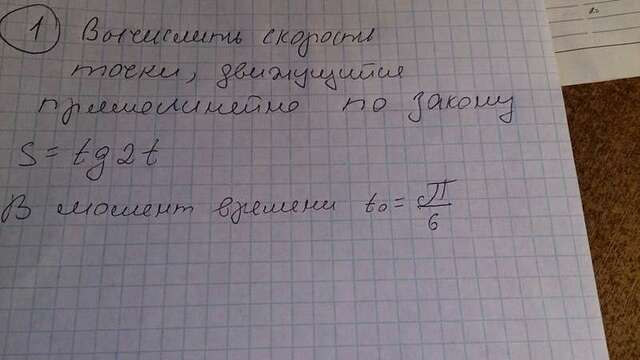 1 Вычислить скорость
точки, движущийся
прямолинейно по закону
S = tg 2t
В момент времени t₀ = π/6